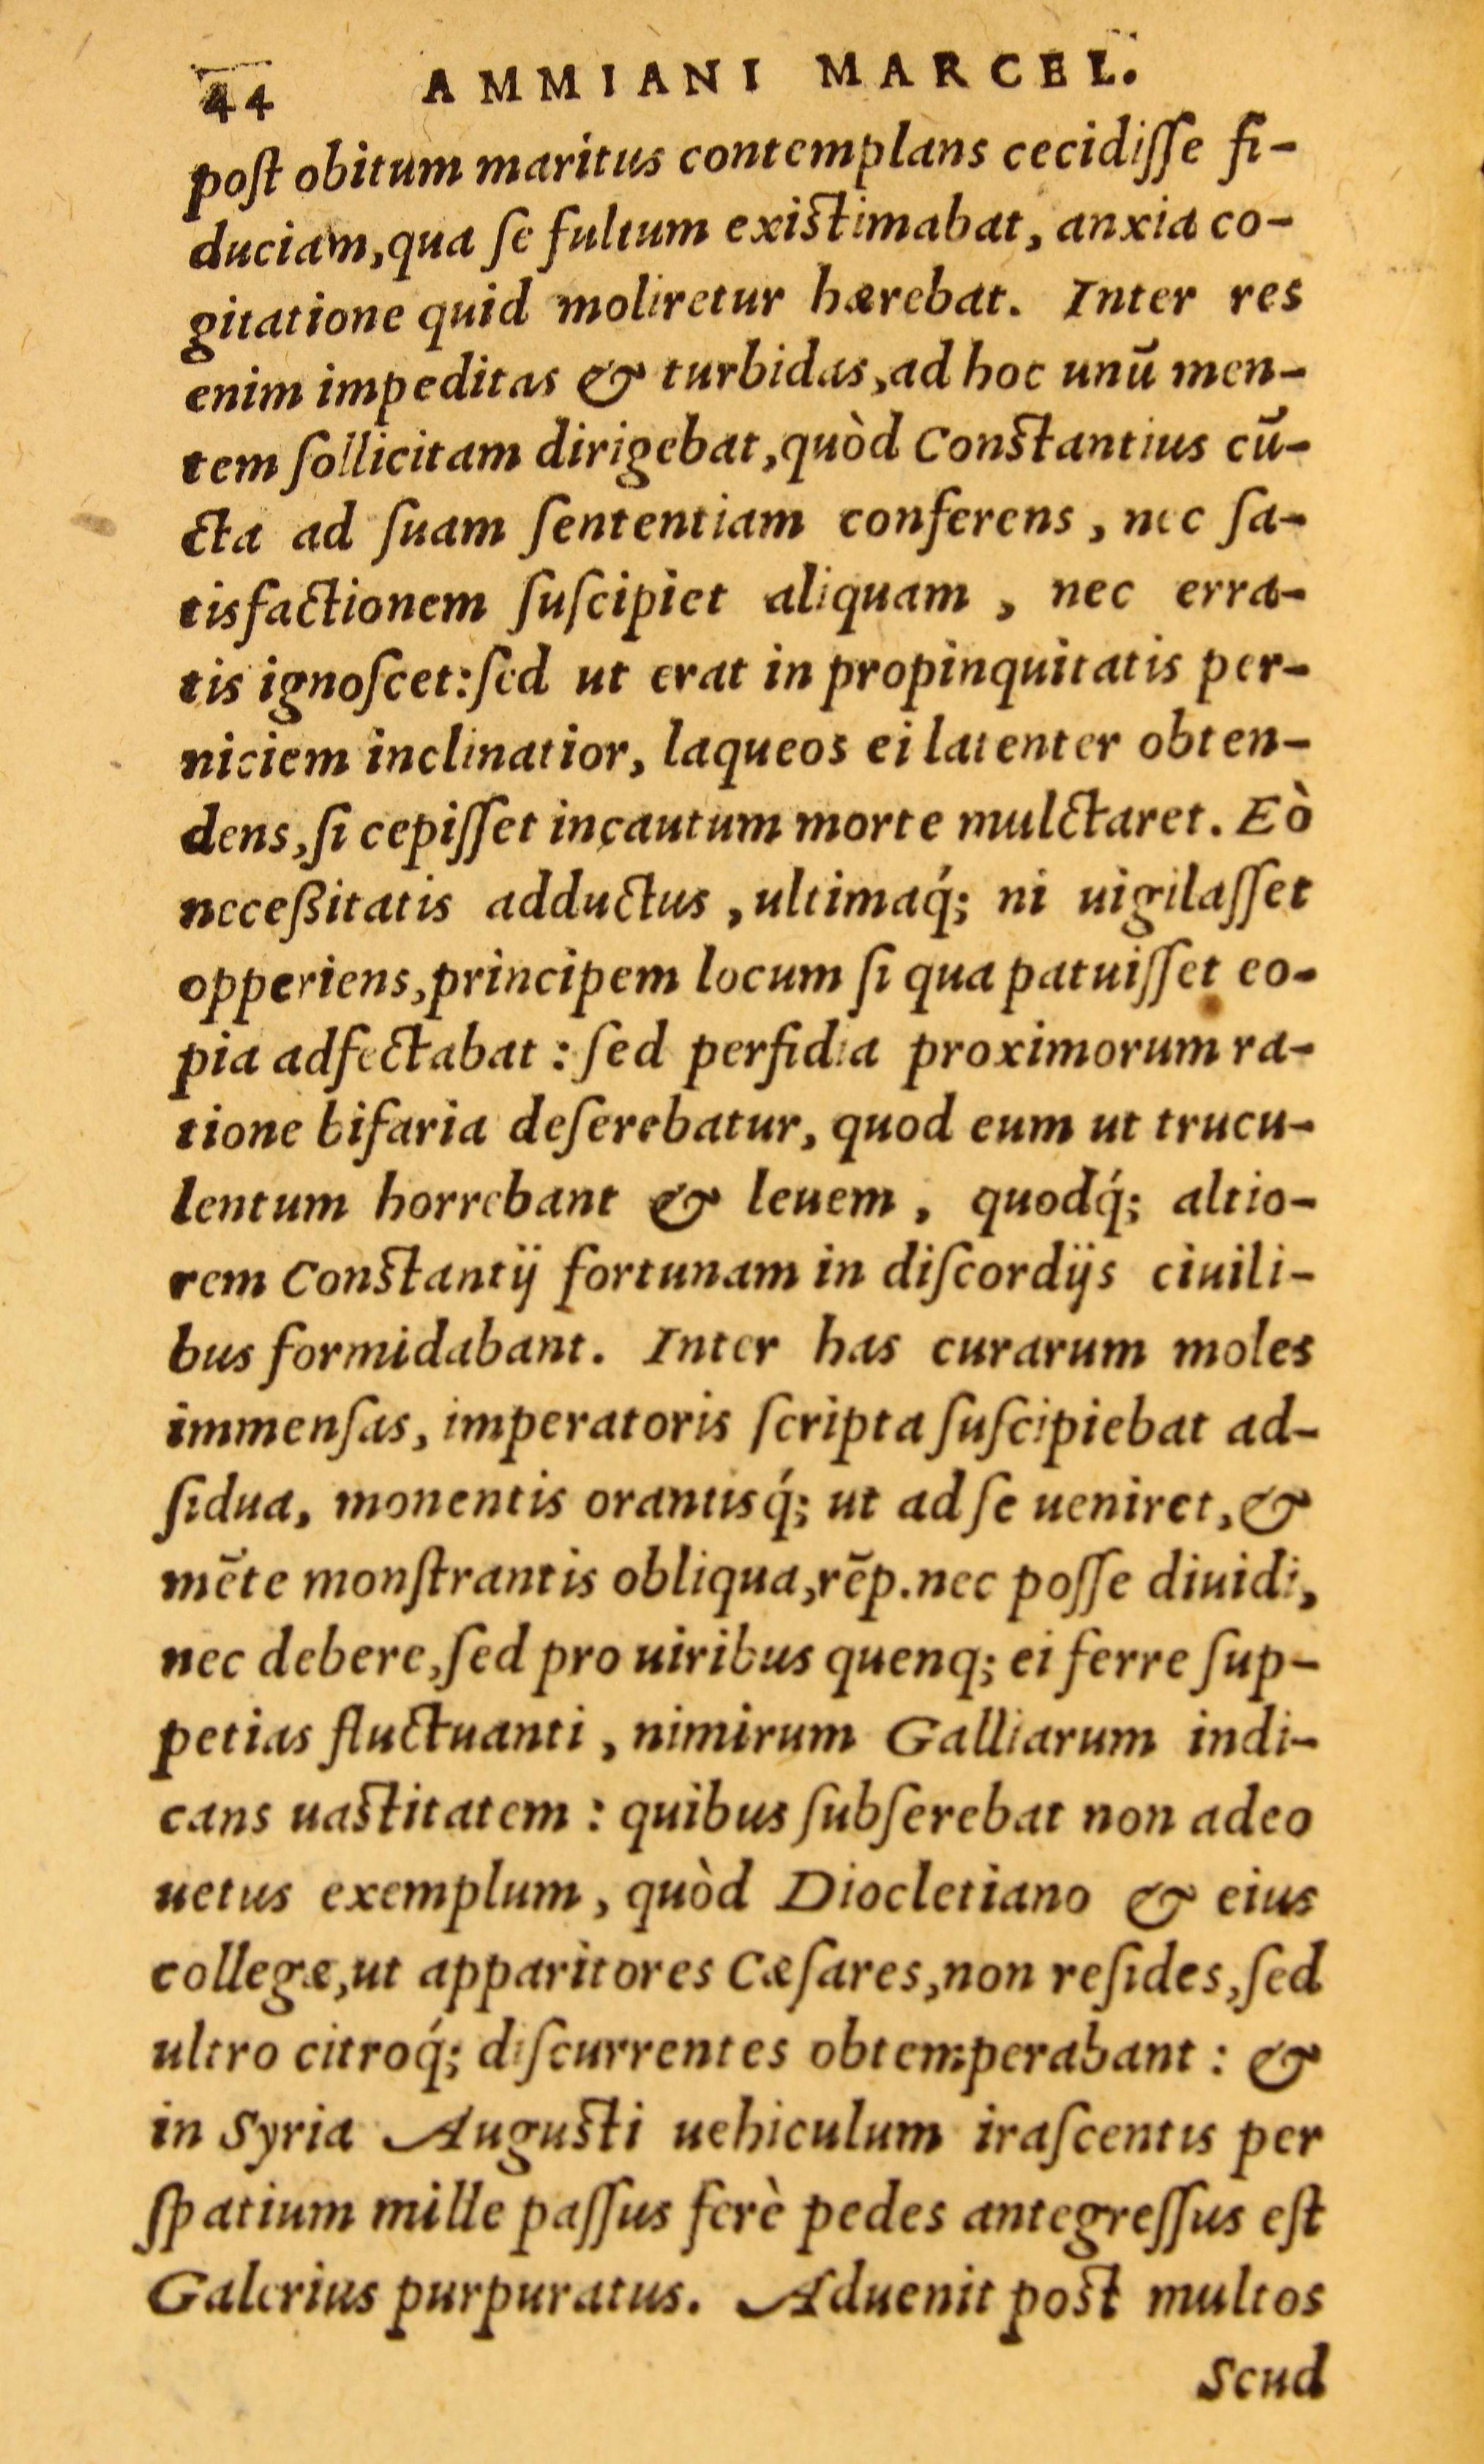 44 AMMIANI MARCEL.
poſt obitum maritus contemplans cecidiſſe fi-
duciam, qua ſe fultum exiſtimabat, anxia co-
gitatione quid moliretur hærebat. Inter res
enim impeditas & turbidas, ad hoc unū men-
tem ſollicitam dirigebat, quòd Conſtantius cū-
cta ad ſuam ſententiam conferens, nec ſa-
tisfactionem ſuſcipiet aliquam, nec erra-
tis ignoſcet: ſed ut erat in propinquitatis per-
niciem inclinatior, laqueos ei latenter obten-
dens, ſi cepiſſet incautum morte mulctaret. Eò
neceßitatis adductus, ultimaq́; ni uigilaſſet
opperiens, principem locum ſi qua patuiſſet co-
pia adfectabat: ſed perfidia proximorum ra-
tione bifaria deſerebatur, quod eum ut trucu-
lentum horrebant & leuem, quodq́; altio-
rem Conſtantij fortunam in diſcordijs ciuili-
bus formidabant. Inter has curarum moles
immenſas, imperatoris ſcripta ſuſcipiebat ad-
ſidua, monentis orantisq́; ut ad ſe ueniret, &
mēte monſtrantis obliqua, rēp. nec poſſe diuidi,
nec debere, ſed pro uiribus quenq; ei ferre ſup-
petias fluctuanti, nimirum Galliarum indi-
cans uaſtitatem: quibus ſubſerebat non adeo
uetus exemplum, quòd Diocletiano & eius
collegæ, ut apparitores Cæſares, non reſides, ſed
ultro citroq́; diſcurrentes obtemperabant: &
in Syria Auguſti uehiculum iraſcentis per
ſpatium mille paſſus ferè pedes antegreſſus eſt
Galerius purpuratus. Aduenit poſt multos
Scud